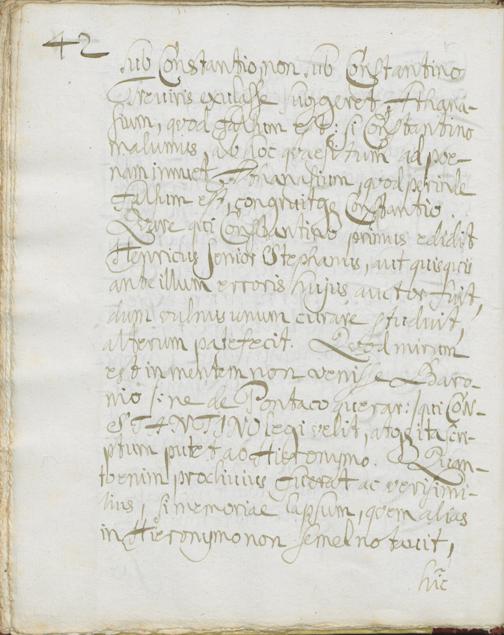 42
sub Constantio, non sub Constantino
Treviris exulasse suggeret Athana-
sium, quod falsum est: si Constantino
malumus, ab hoc quaesitum ad poe-
nam innuet Athanasium, quod perinde
falsum est, congruitque Constantio.
Quare qui Constantino primus edidit
Henricus senior Stephanus, aut quisquis
ante illum erroris hujus auctor fuit,
dum vulnus unum curare studuit,
alterum patefecit. Quod mirum
est in mentem non venisse Baro-
nio /: ne de Pontaco querar :/ qui CON-
STANTINO legi velit, atque ita scri-
ptum putet ab Hieronymo. Quan-
to enim proclivius fuerat ac verisimi-
lius, si memoriae lapsum, quem alias
in Hieronymo non semel notavit,
hic